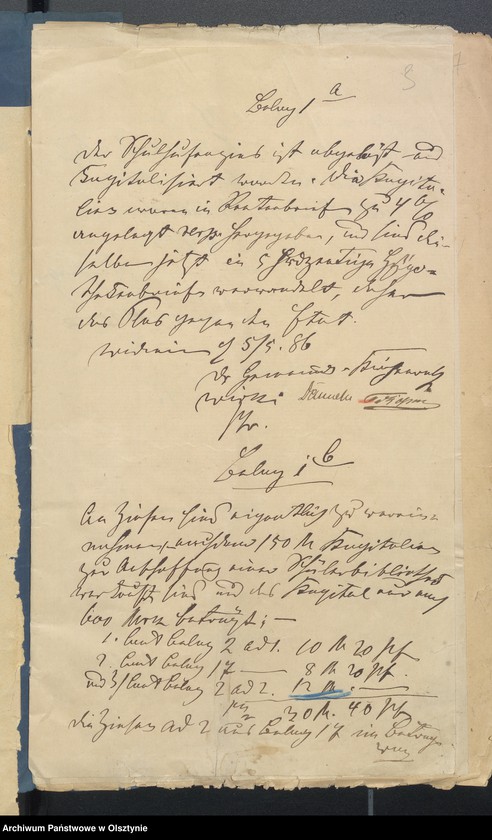 Belag 1 a
Der Schulhufenzins ist abgelöst und
Kapitalisiert worden. Die Kapita-
lien waren in Rentenbriefen zu 4 %
angelegt resp. hergegeben, und sind die-
selben jetzt in 5 prozentige Hypo-
thekenbriefe verwandelt, daher
das Plus gegen den Etat.
5/5. 86
Der Gemeinde-Kirchenrath
Pfr.
Belag 1 b
An Zinsen sind eigentlich zu verein-
nahmen, nachdem 150 M Kapitalien
zur Anschaffung einer Schülerbibliothek
sind und das Kapital nur noch
600 Mark beträgt; —
1. laut Belag 2 ad 1. 10 M 20 Pf
2. laut Belag 17 — 8 M 20 Pf.
und 3/ laut Belag 2 ad 2. 12 M. —
30 M. 40 Pf
die Zinsen ad 2 aus Belag 17 im Betrage
von
Archiwum Państwowe w Olsztynie